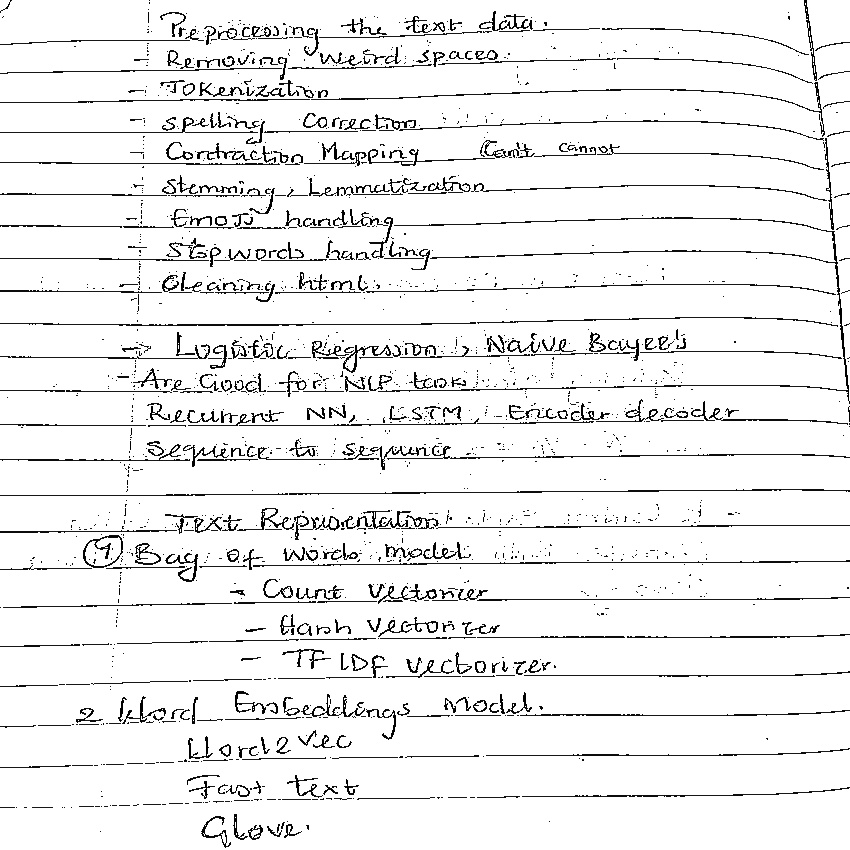 Preprocessing the text data.
- Removing weird spaces.
- Tokenization
- spelling Correction
- Contraction Mapping Can't cannot
- Stemming, Lemmatization
- Emoji handling
- Stopwords handling
- Cleaning html.
→ Logistic Regression, Naive Bayee's
- Are Good for NLP task
Recurrent NN, LSTM, Encoder decoder
Sequence to sequence
Text Representation
1 Bag of words model
- Count Vectorizer
- Hash Vectorizer
- TF IDF Vectorizer.
2 Word Embeddings Model.
Word2Vec
Fast text
Glove.